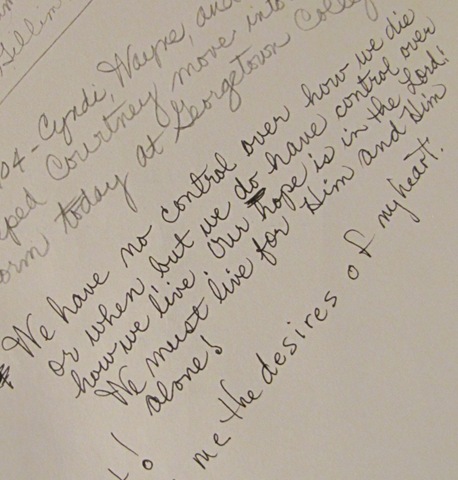 Gillim
04 - Cyndi, Wayne, and
Courtney move into
today at Georgetown College
We have no control over how we die
or when, but we do have control over
how we live. Our hope is in the Lord!
We must live for Him and Him
alone!
me the desires of my heart.